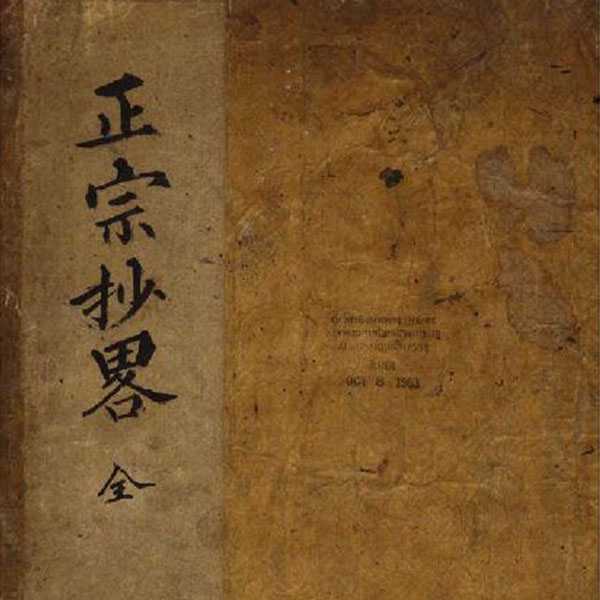 正宗抄畧
全
OCT 8 1963